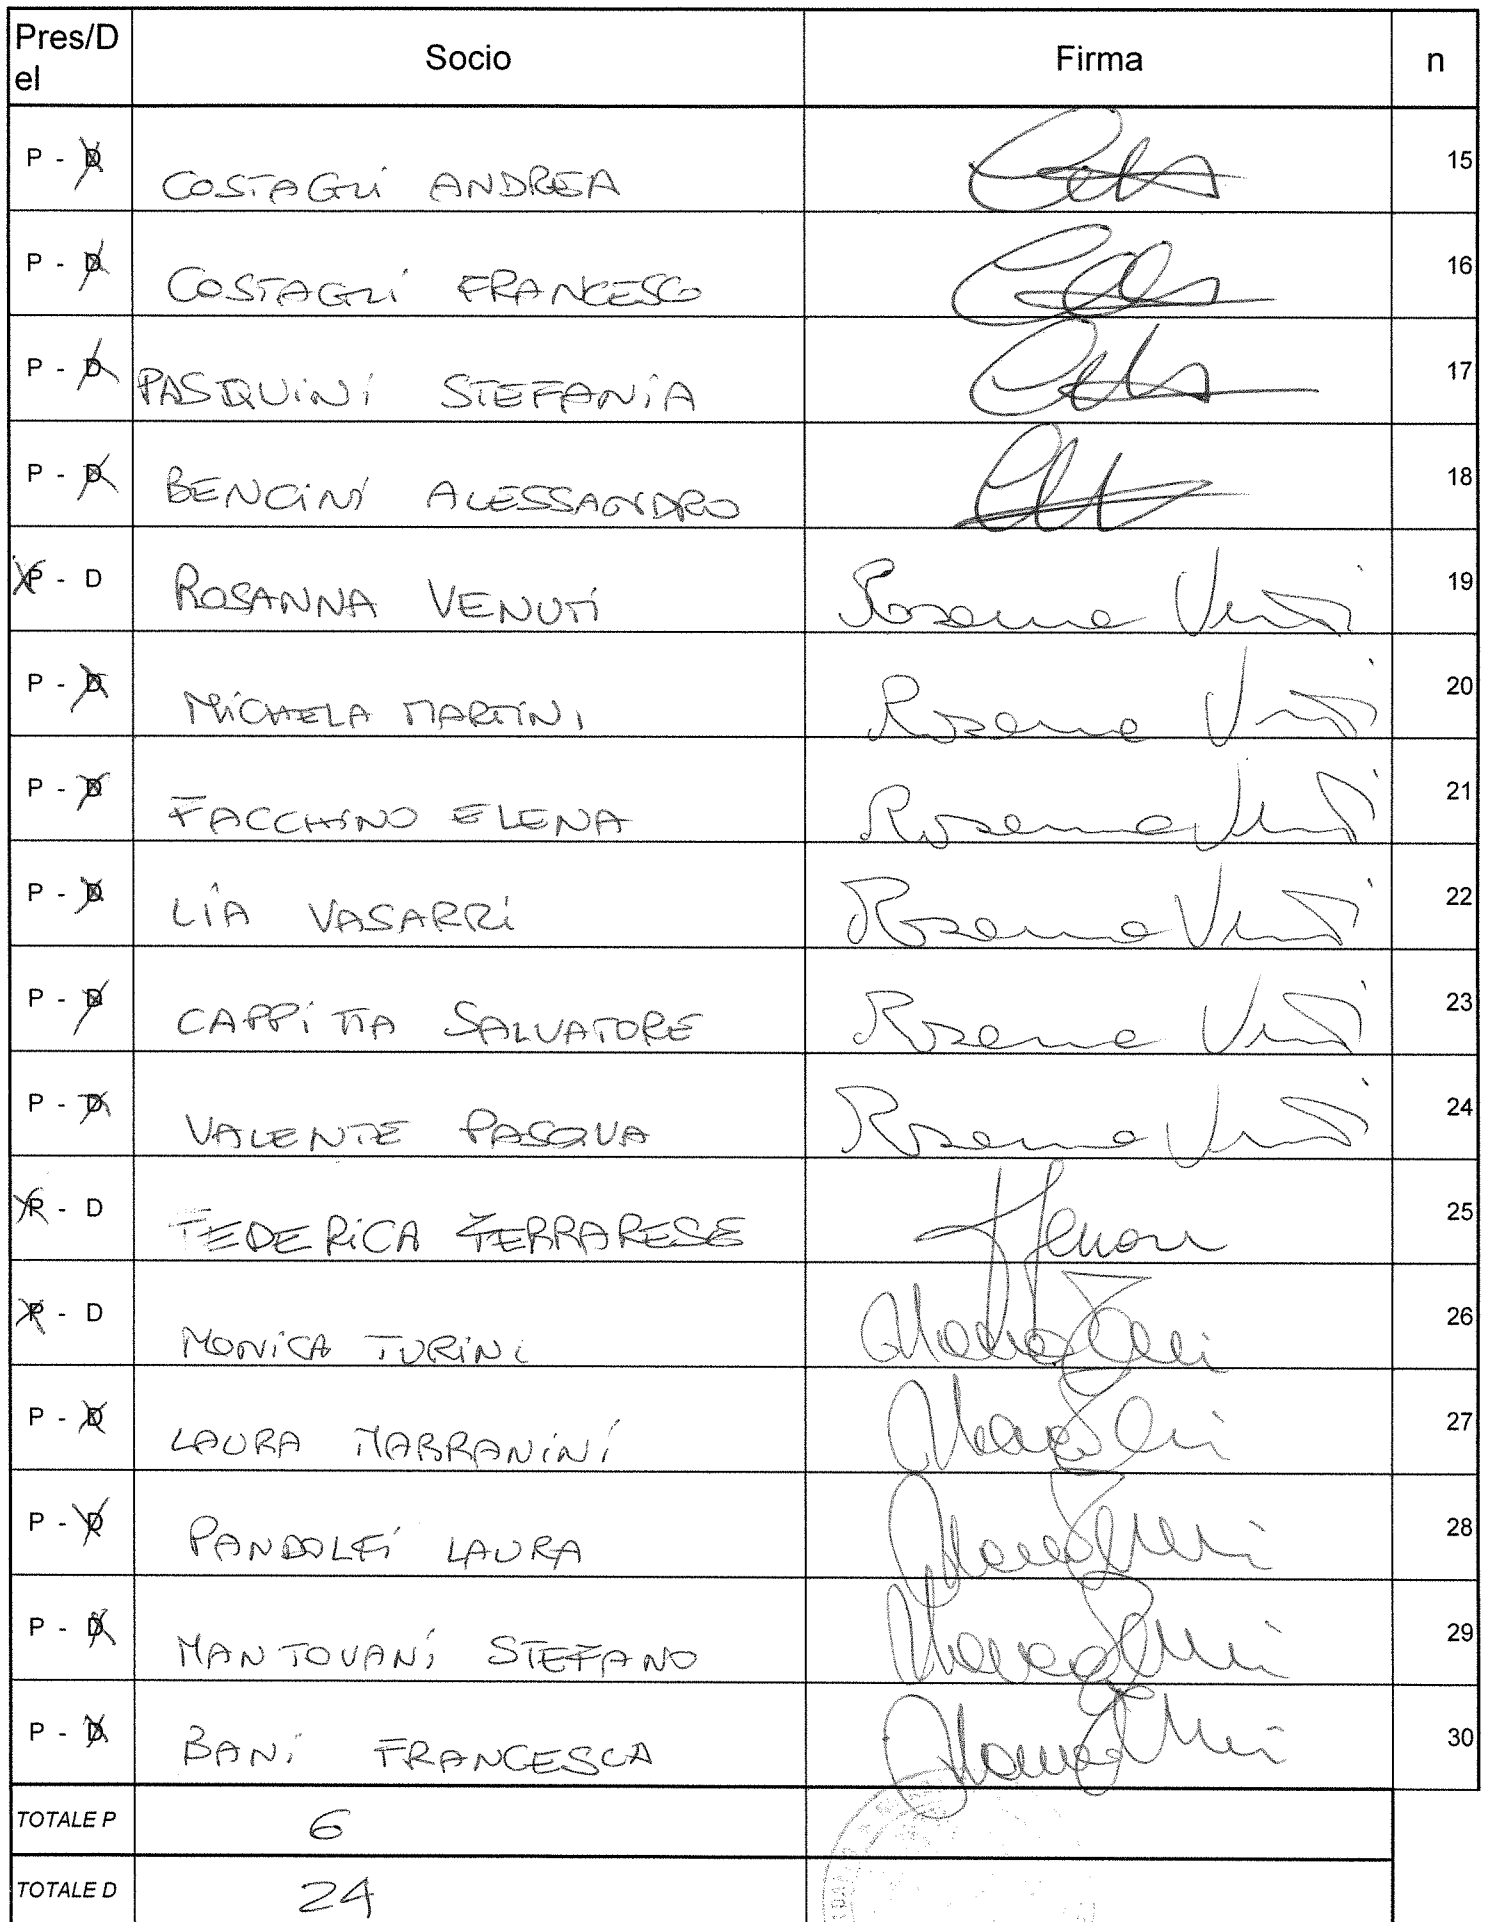 Pres/Del Socio Firma n
P - D COSTAGLI ANDREA 15
P - D COSTAGLI FRANCESCO 16
P - D PASQUINI STEFANIA 17
P - D BENCINI ALESSANDRO 18
P - D ROSANNA VENUTI Rosanna Venuti 19
P - D MICHELA MARTINI Rosanna Venuti 20
P - D FACCHINO ELENA Rosanna Venuti 21
P - D LIA VASARRI Rosanna Venuti 22
P - D CAPPITTA SALVATORE Rosanna Venuti 23
P - D VALENTE PASQUA Rosanna Venuti 24
P - D FEDERICA FERRARESE 25
P - D MONICA TURINI 26
P - D LAURA MARRANINI 27
P - D PANDOLFI LAURA 28
P - D MANTOVANI STEFANO 29
P - D BANI FRANCESCA 30
TOTALE P 6
TOTALE D 24